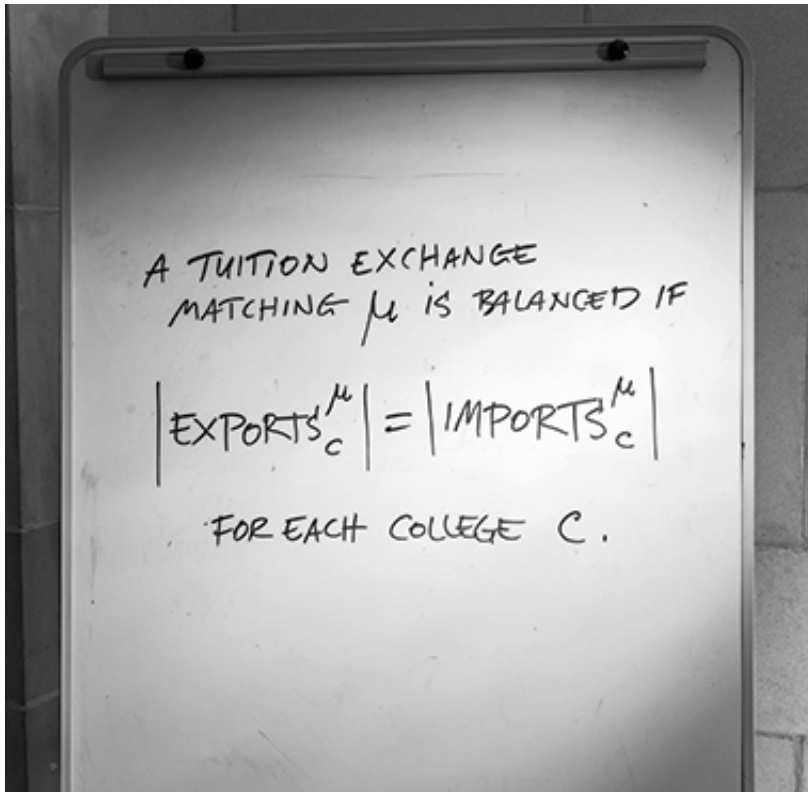 A TUITION EXCHANGE
MATCHING μ IS BALANCED IF
|EXPORTS_c^μ| = |IMPORTS_c^μ|
FOR EACH COLLEGE C.